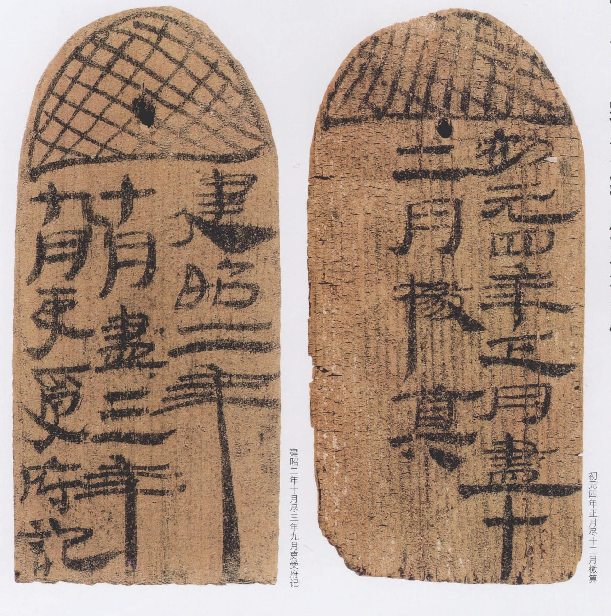 初元四年正月盡十
二月檄算
初元四年正月尽十二月檄算
建昭二年
十月盡三年
九月吏受府記
建昭二年十月尽三年九月吏受府记